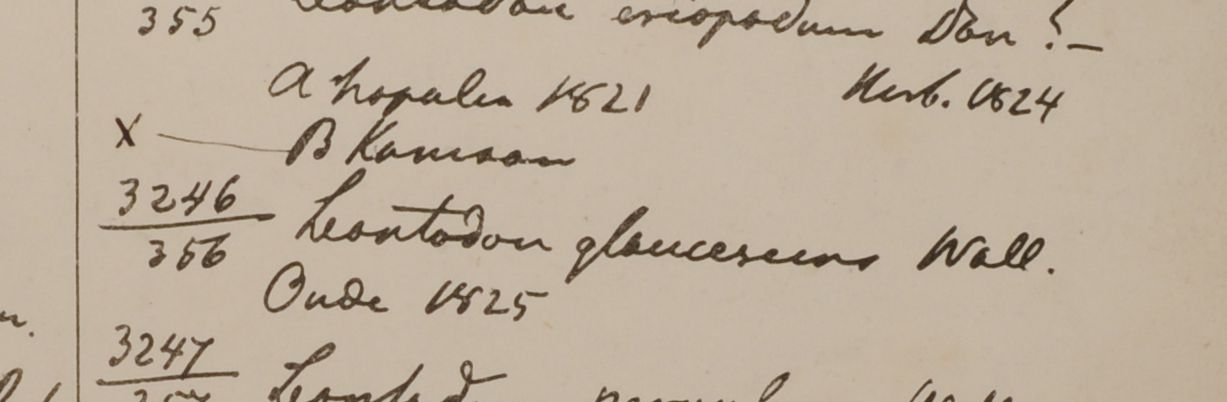 355 Leontodon eriopodum Don ? -
A Napalia 1821 Herb. 1824
X B Kamaon
3246 Leontodon glaucescens Wall.
356
Oude 1825
3247